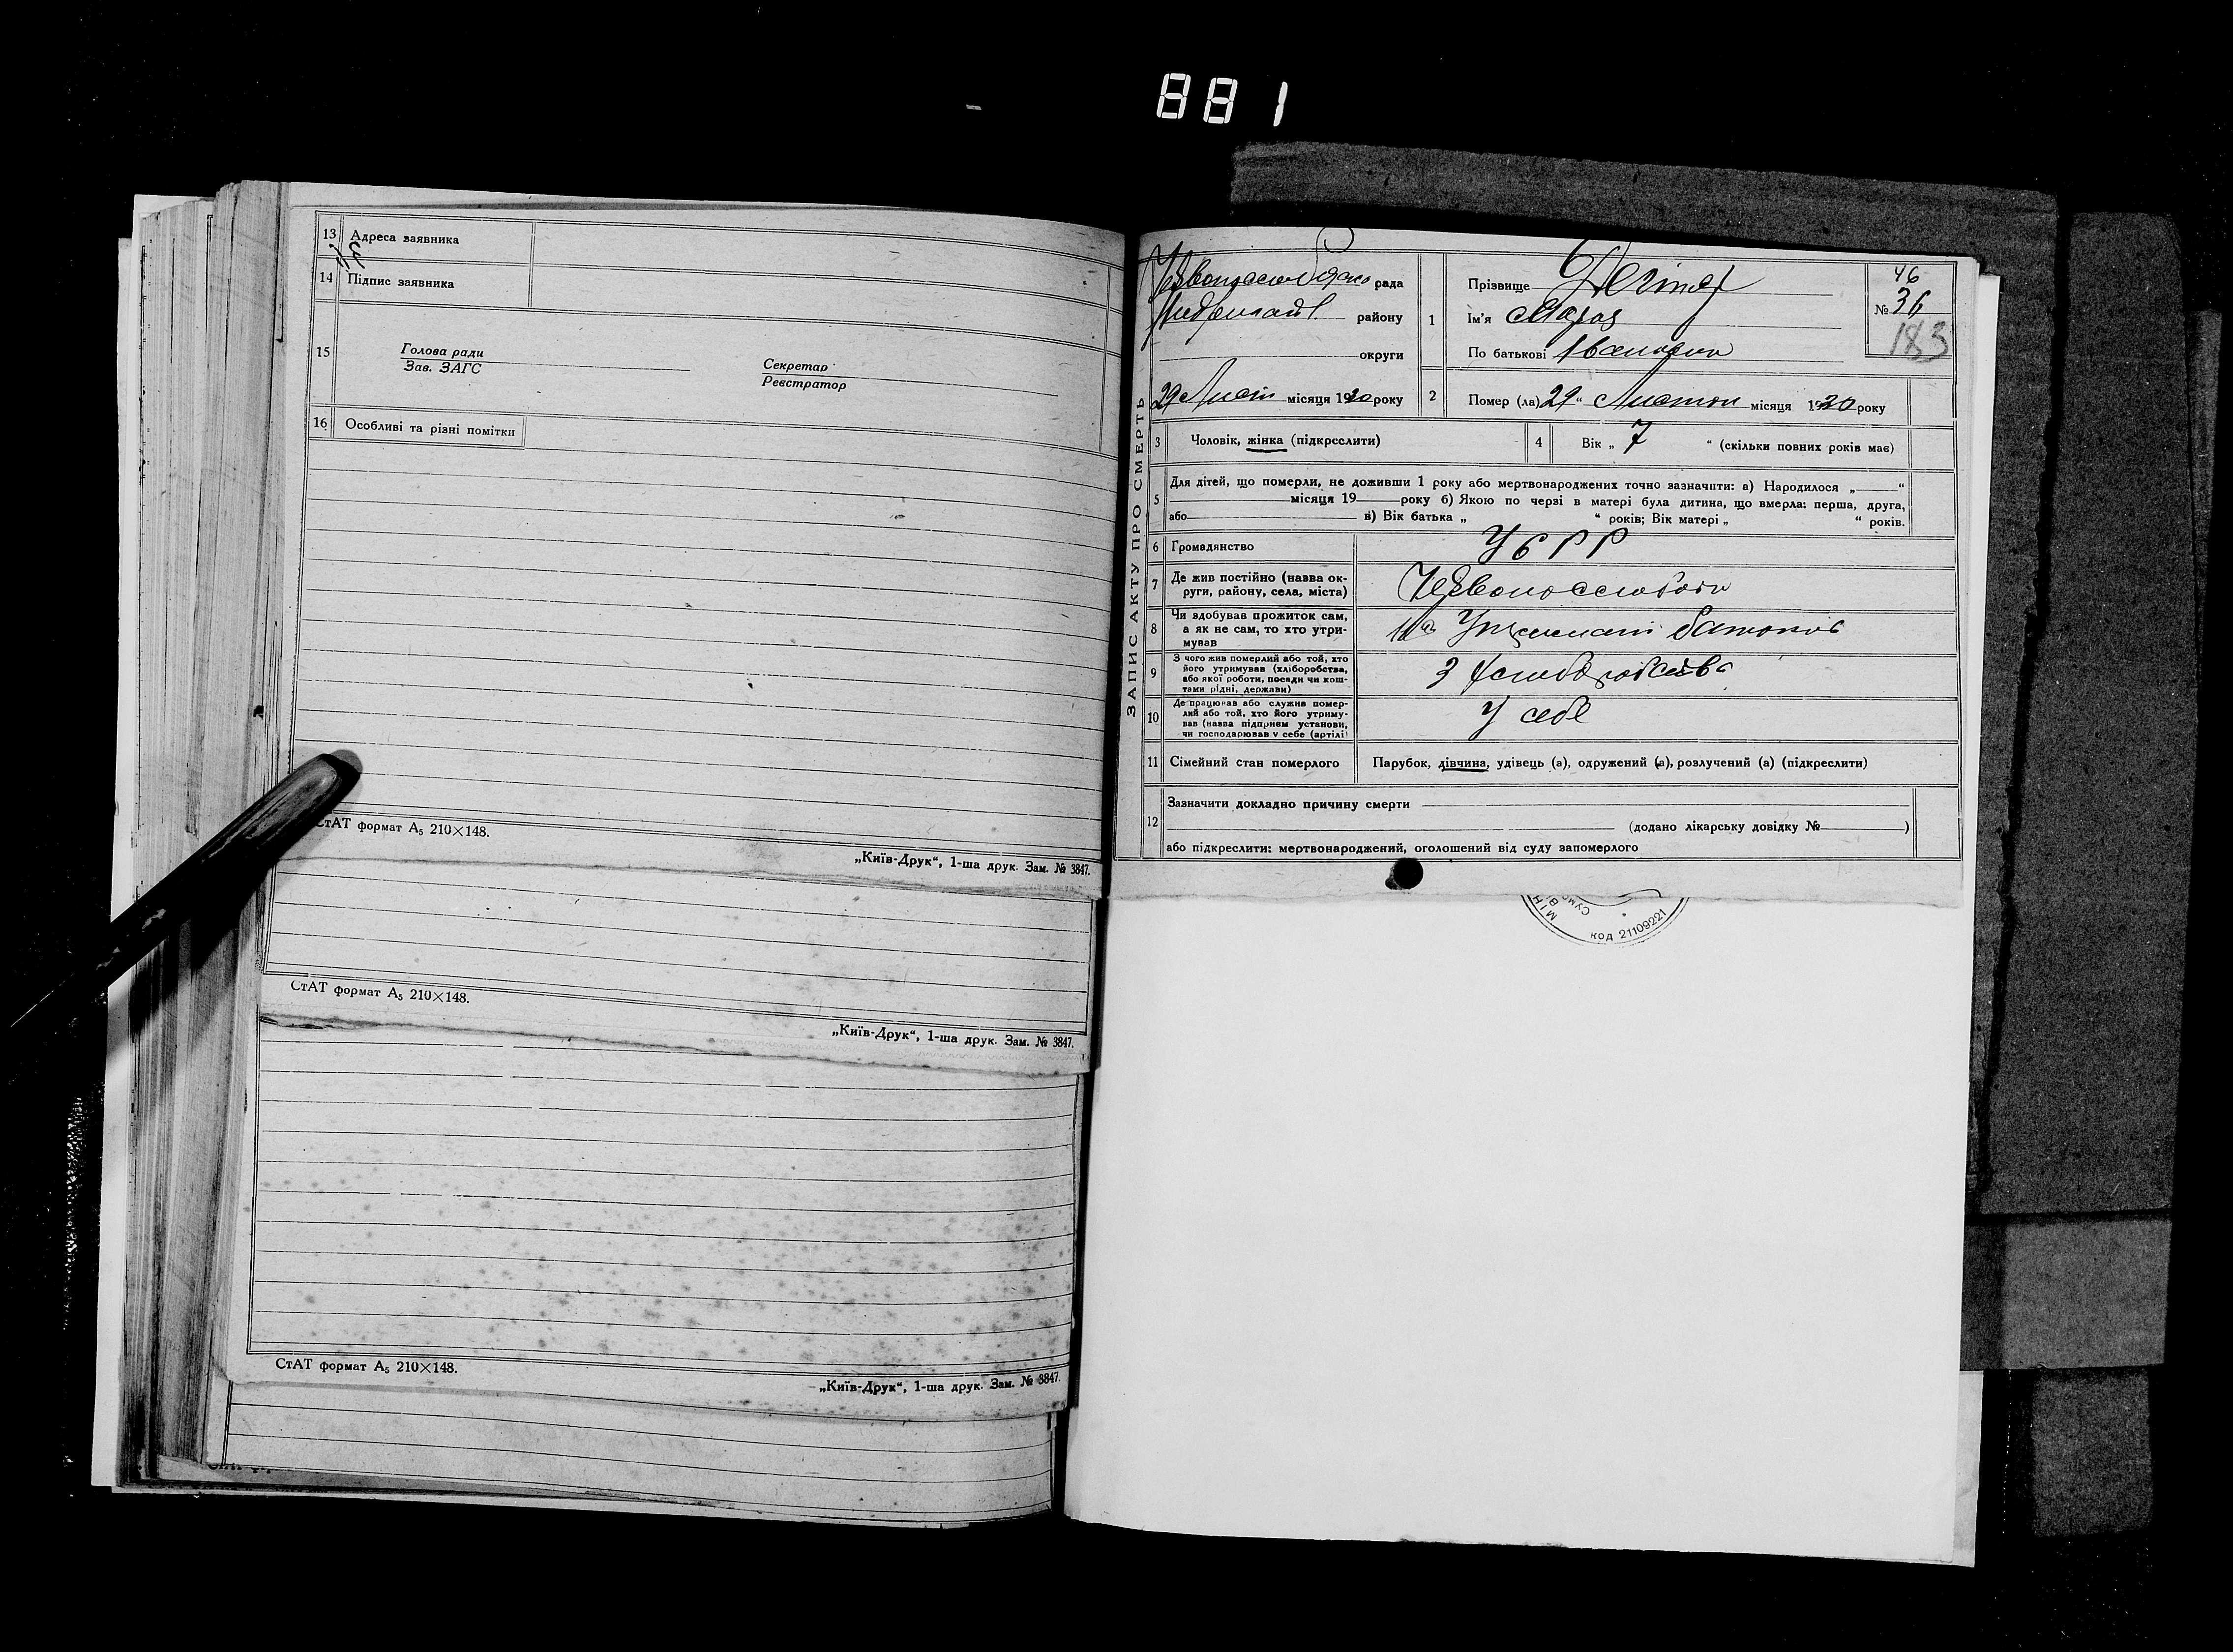 881
13 Адреса заявника
14 Підпис заявника
15 Голова ради
Зав. ЗАГС
Секретар
Реєстратор
16 Особливі та різні помітки
СтАТ формат А5 210×148.
„Київ-Друк“, 1-ша друк. Зам. № 3847.
СтАТ формат А5 210×148.
„Київ-Друк“, 1-ша друк. Зам. № 3847.
СтАТ формат А5 210×148.
„Київ-Друк“, 1-ша друк. Зам. № 3847.
ЗАПИС АКТУ ПРО СМЕРТЬ
рада
району
округи
29 Лист місяця 1930 року
1 Прізвище
Ім'я
По батькові Івановна
46
№ 36
183
2 Помер (ла) 29 “ Листоп місяця 1930 року
3 Чоловік, жінка (підкреслити)
4 Вік „ 7 “ (скільки повних років має)
5 Для дітей, що померли, не доживши 1 року або мертвонароджених точно зазначити: а) Народилося „ “
місяця 19 року б) Якою по черзі в матері була дитина, що вмерла: перша, друга,
або в) Вік батька „ “ років; Вік матері „ “ років.
6 Громадянство УСРР
7 Де жив постійно (назва ок-
руги, району, села, міста)
8 Чи здобував прожиток сам,
а як не сам, то хто утри-
мував
На батьків
9 З чого жив померлий або той, хто
його утримував (хліборобства,
або якої роботи, посади чи кош-
тами рідні, держави)
З
10 Де працював або служив помер-
лий або той, хто його утриму-
вав (назва підприєм установи,
чи господарював у себе (артілі)
У себе
11 Сімейний стан померлого Парубок, дівчина, удівець (а), одружений (а), розлучений (а) (підкреслити)
12 Зазначити докладно причину смерти
(додано лікарську довідку № )
або підкреслити: мертвонароджений, оголошений від суду запомерлого
код 21109221